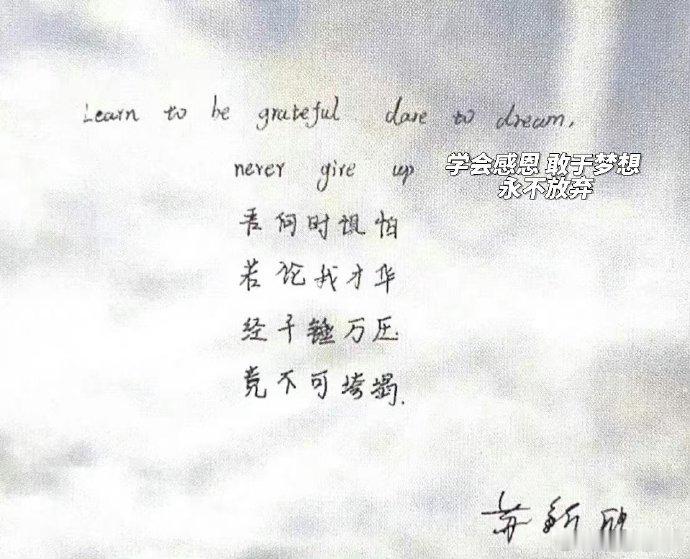 Learn to be grateful dare to dream,
never give up
学会感恩 敢于梦想
永不放弃
吾何时惧怕
若论我才华
经千锤万压
竟不可垮塌.